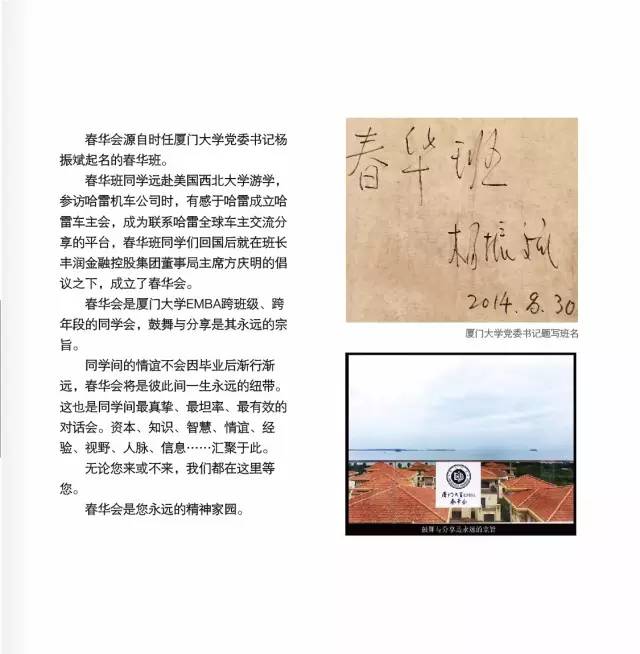 春华会源自时任厦门大学党委书记杨
振斌起名的春华班。
春华班同学远赴美国西北大学游学，
参访哈雷机车公司时，有感于哈雷成立哈
雷车主会，成为联系哈雷全球车主交流分
享的平台，春华班同学们回国后就在班长
丰润金融控股集团董事局主席方庆明的倡
议之下，成立了春华会。
春华会是厦门大学EMBA跨班级、跨
年段的同学会，鼓舞与分享是其永远的宗
旨。
同学间的情谊不会因毕业后渐行渐
远，春华会将是彼此间一生永远的纽带。
这也是同学间最真挚、最坦率、最有效的
对话会。资本、知识、智慧、情谊、经
验、视野、人脉、信息……汇聚于此。
无论您来或不来，我们都在这里等
您。
春华会是您永远的精神家园。
春华班
杨振斌
2014.8.30
厦门大学党委书记题写班名
厦门大学EMBA
春华会